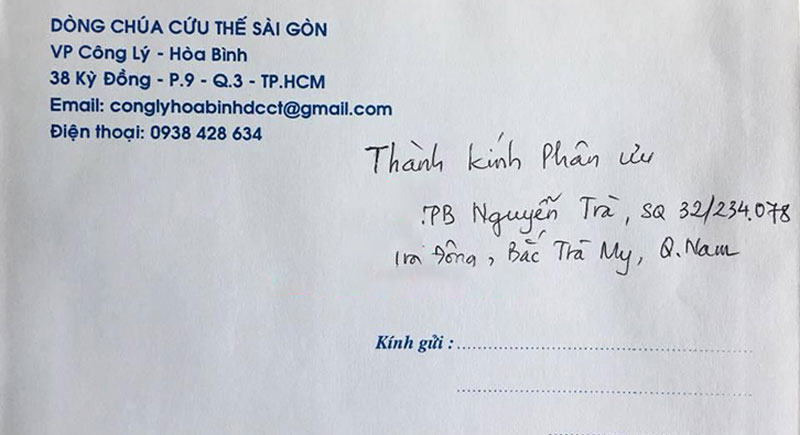 DÒNG CHÚA CỨU THẾ SÀI GÒN
VP Công Lý - Hòa Bình
38 Kỳ Đồng - P.9 - Q.3 - TP.HCM
Email: conglyhoabinhdcct@gmail.com
Điện thoại: 0938 428 634
Thành kính Phân ưu
TPB Nguyễn Trà, SQ 32/234.078
Trà Đông, Bắc Trà My, Q.Nam
Kính gửi :